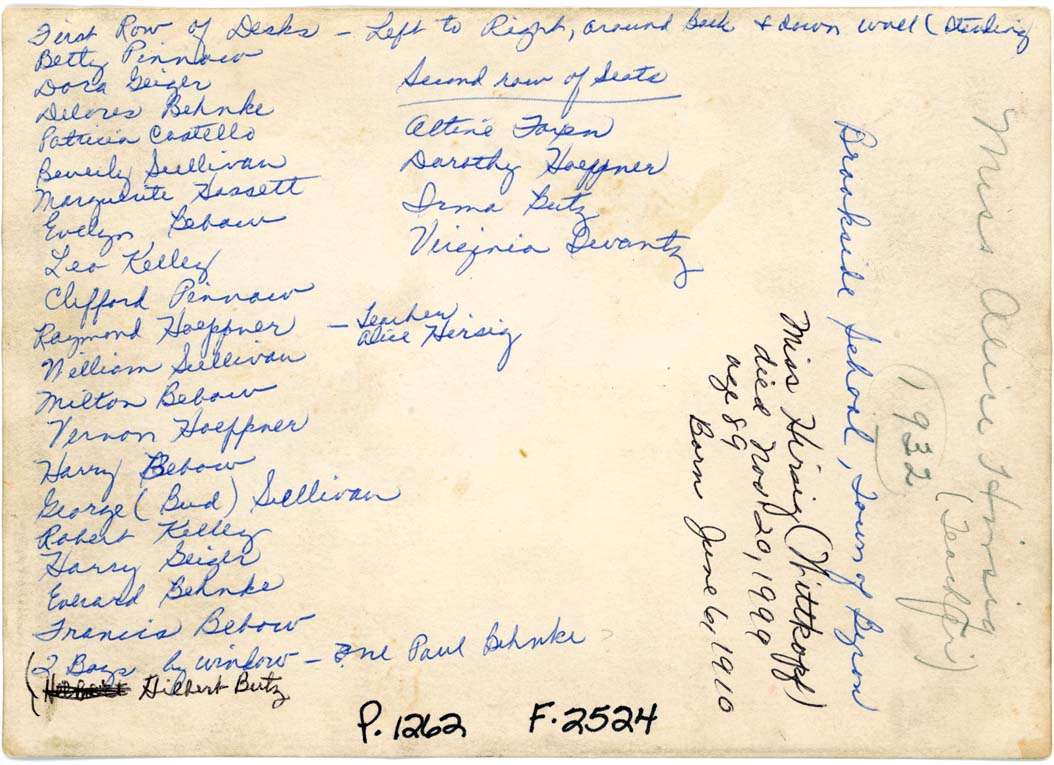 First Row of Desks – Left to Right, around back & down wall (Standing
Betty Pinnow
Dora Geiger
Delores Behnke
Patricia Costello
Beverly Sullivan
Marguerite Hassett
Evelyn Bebow
Leo Kelley
Clifford Pinnow
Raymond Hoeppner – Teacher
Alice Hirsig
William Sullivan
Milton Bebow
Vernon Hoeppner
Harry Bebow
George (Bud) Sullivan
Robert Kelley
Harry Geiger
Everard Behnke
Francis Bebow
(2 Boys by window – one Paul Behnke ?
Gilbert Butz
Second row of Seats
Dorothy Hoeppner
Irma Butz
Virginia Dwantz
Miss Hirsig (Wittkopf)
died Nov 20, 1999
age 89
Born June 6, 1910
Brookside School, Town of Byron
1932
Miss Alice Hirsig
(Teacher)
P. 1262 F. 2524